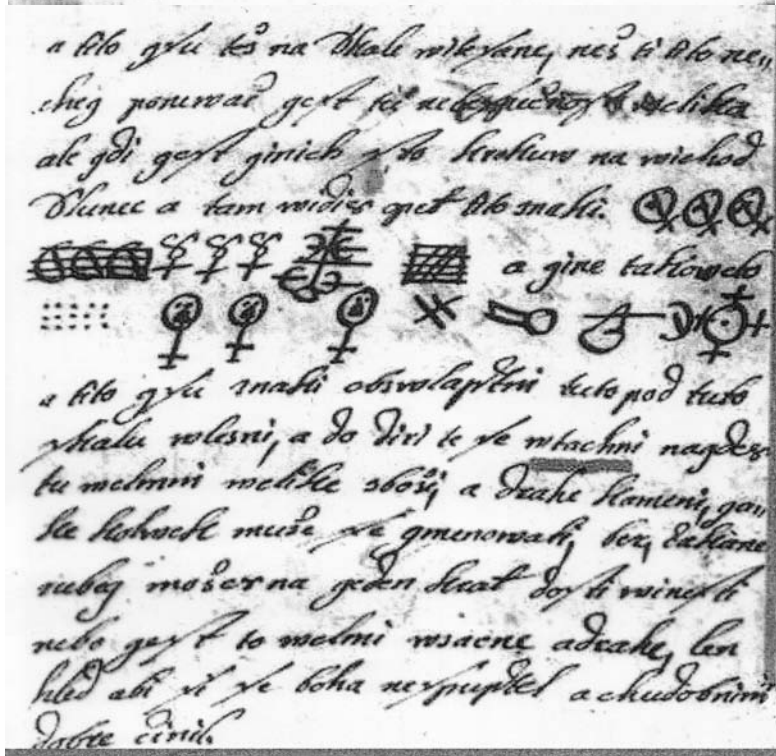 a tito gsu też na Skale witesane, neż ti tito ne„
cheg ponewač gest tu nebezpečnost welika
ale gdi gest ginich sto krokuw na wichod
Slunce a tam widiss opet tito znaki.
a gine takoweto
a tito gsu znaki obzwlasstni tuto pod tuto
skalu wlesni, a do diri te se wtachni nagdess
tu welmni welike zbożi, a drahe kameni, ga„
ke kolwek muże se gmenowati, ber, żadane
nebog możess na geden krat dosti winesti
nebo gest to welmi wzacne a drahe, len
hled abi si se boha nespustel a chudobnim
dobre činil.